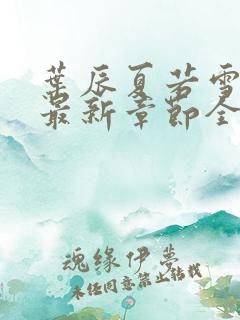 葉辰夏若雪
最新章節全
魂缘伊梦
未经同意禁止转载